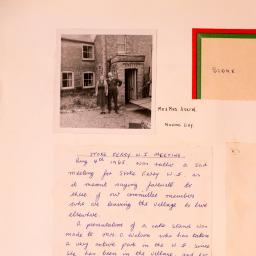 SCONE
MR & MRS
MOVING DAY.
STOKE FERRY W.I. MEETING.
Aug 4th 1965 was rather a sad
meeting for Stoke Ferry W.I. as
it meant saying farewell to
three of our committee members
who are leaving the village to live
elsewhere.
A presentation of a cake stand was
made to Mrs. C. Wilson who has taken
a very active part in the W.I. since
she has been in the village, and